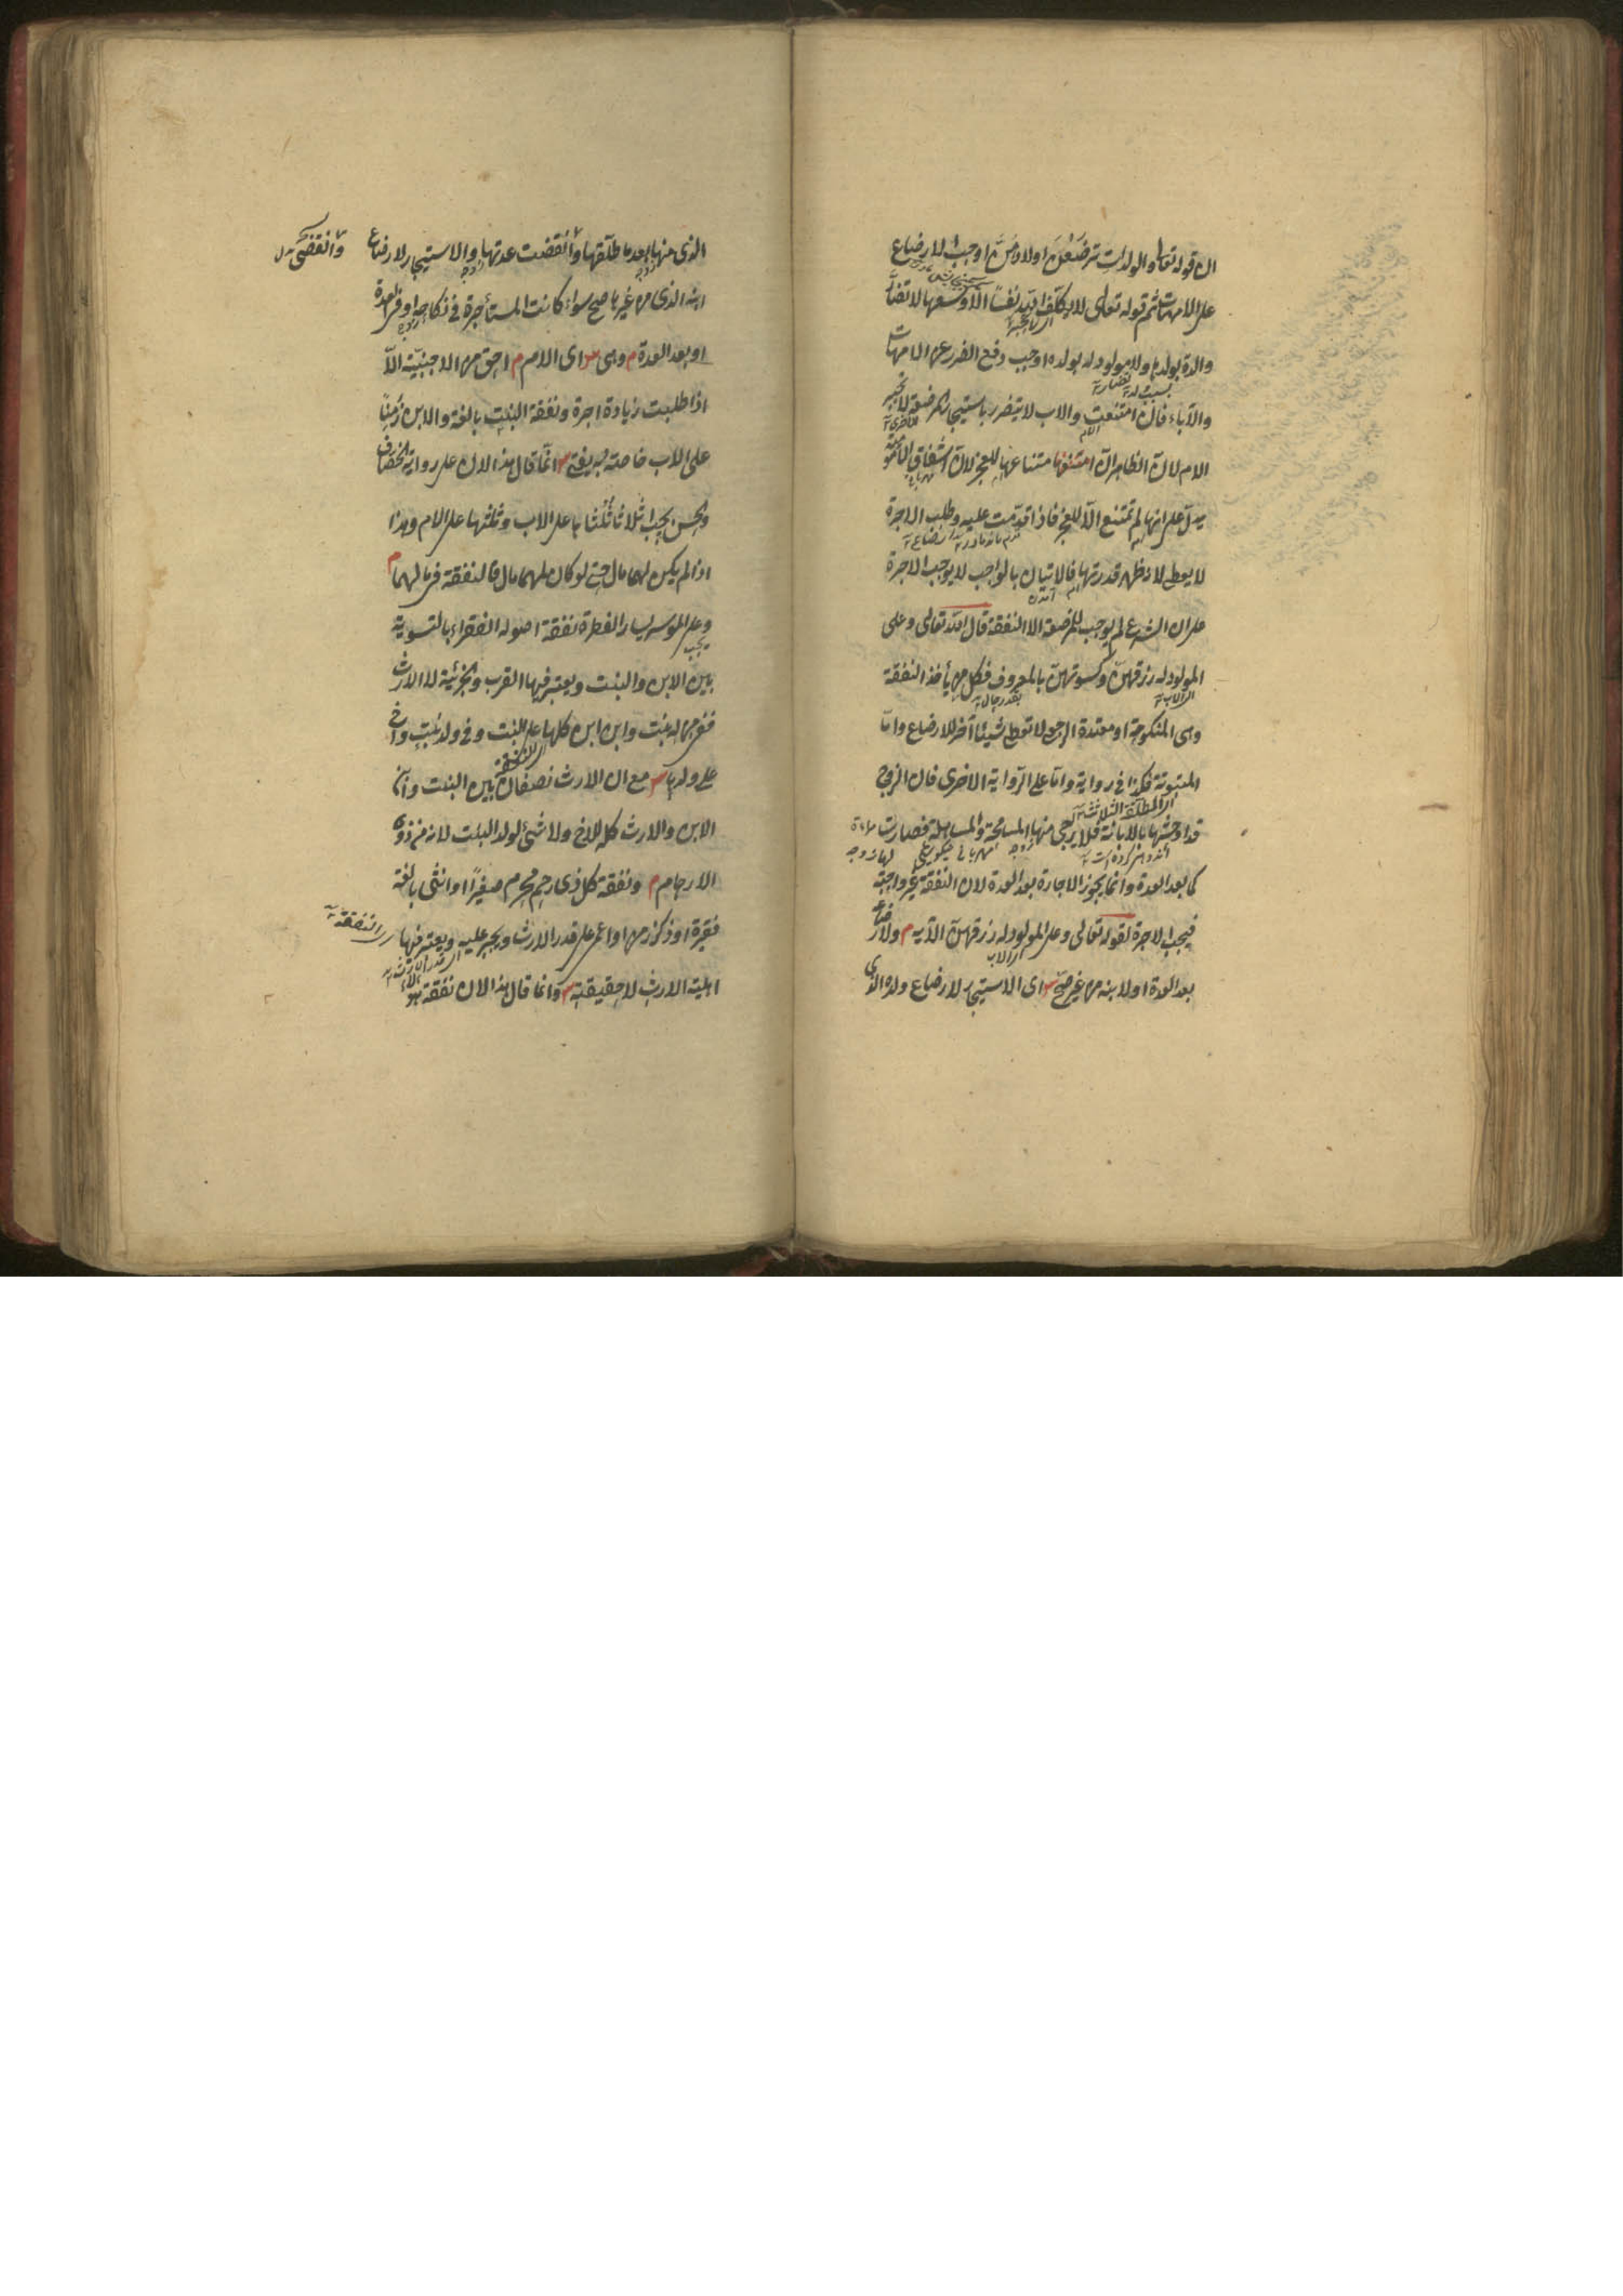 ان قوله تعا والوالدات يرضعن اولادهن اوجب الارضاع
على الامهات ثم قوله تعالى لا يكلف الله نفسًا الا وسعها لا تضار
والدة بولدها ولا مولود له بولده اوجب دفع الضرر عن الامهات
والآباء فان امتنعت والاب لا يتضرر باستيجار المرضعة لا تجبر
الام لان الظاهر ان امتناعها للعجز لان اشفاق الامومة
يدل على انها لم تمتنع الا للعجز فاذا اقدمت عليه وطلب الاجرة
لا يعطى لانه ظهر قدرتها فالاتيان بالواجب لا يوجب الاجرة
على ان الشرع لم يوجب للمرضعة الا النفقة قال الله تعالى وعلى
المولود له رزقهن وكسوتهن بالمعروف فكل من يأخذ النفقة
وهى المنكوحة او معتدة الرجعى لا تعطى شيئا آخر للارضاع واما
المبتوتة فكذا فى رواية واما على الرواية الاخرى فان الزوج
قد اوحشها بالابانة فلا يرجى منها المسامحة والمساهلة فصارت
كما بعد العدة وانما يجوز الاجارة بعد العدة لان النفقة غير واجبة
فيجب الاجرة لقوله تعالى وعلى المولود له رزقهن الآية م ولارضاع
بعد العدة او لابنه من غيرها صح ش اى الاستيجار لارضاع ولده الذى
الذى منها بعد ما طلقها وانقضت عدتها والاستيجار لارضاع
ابنه الذى من غيرها صح سواء كانت المستأجرة فى نكاحه او فى العدة
او بعد العدة م وهى ش اى الام م احق من الاجنبية الا
اذا طلبت زيادة اجرة ونفقة البنت بالغة والابن زمِنًا
على الاب خاصة به يفتى ش انما قال هذا لان على رواية الخصاف
والحسن يجب اثلاثا ثلثاها على الاب وثلثها على الام وهذا
اذا لم يكن لهما مال حتى لو كان لهما مال فالنفقة فى مالهما م
وعلى الموسر يسار الفطرة نفقة اصوله الفقراء بالتسوية
بين الابن والبنت ويعتبر فيها القرب والجزئية لا الارث
ففى من له بنت وابن ابن كلها على البنت وفى ولد بنت واخ
على ولدها ش مع ان الارث نصفان بين البنت وابن
الابن والارث كله للاخ ولا شئ لولد البنت لانه من ذوى
الارحام م ونفقة كل ذى رحم محرم صغيرًا او انثى بالغة
فقيرة او ذكر زمن او اعمى على قدر الارث ويجبر عليه ويعتبر فيها
اهلية الارث لا حقيقته ش وانما قال هذا لان نفقة هؤلاء
وانقضى